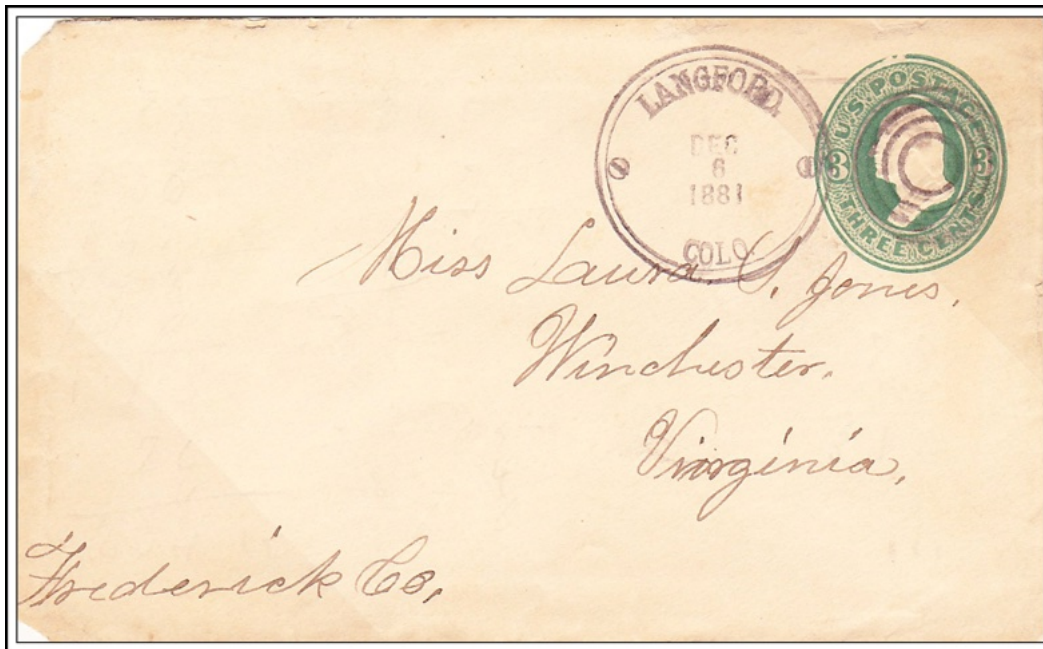 LANGFORD,
DEC
6
1881
COLO.
U.S. POSTAGE
3 3
THREE CENTS
Miss Laura. S. Jones.
Winchester.
Virginia,
Frederick Co,